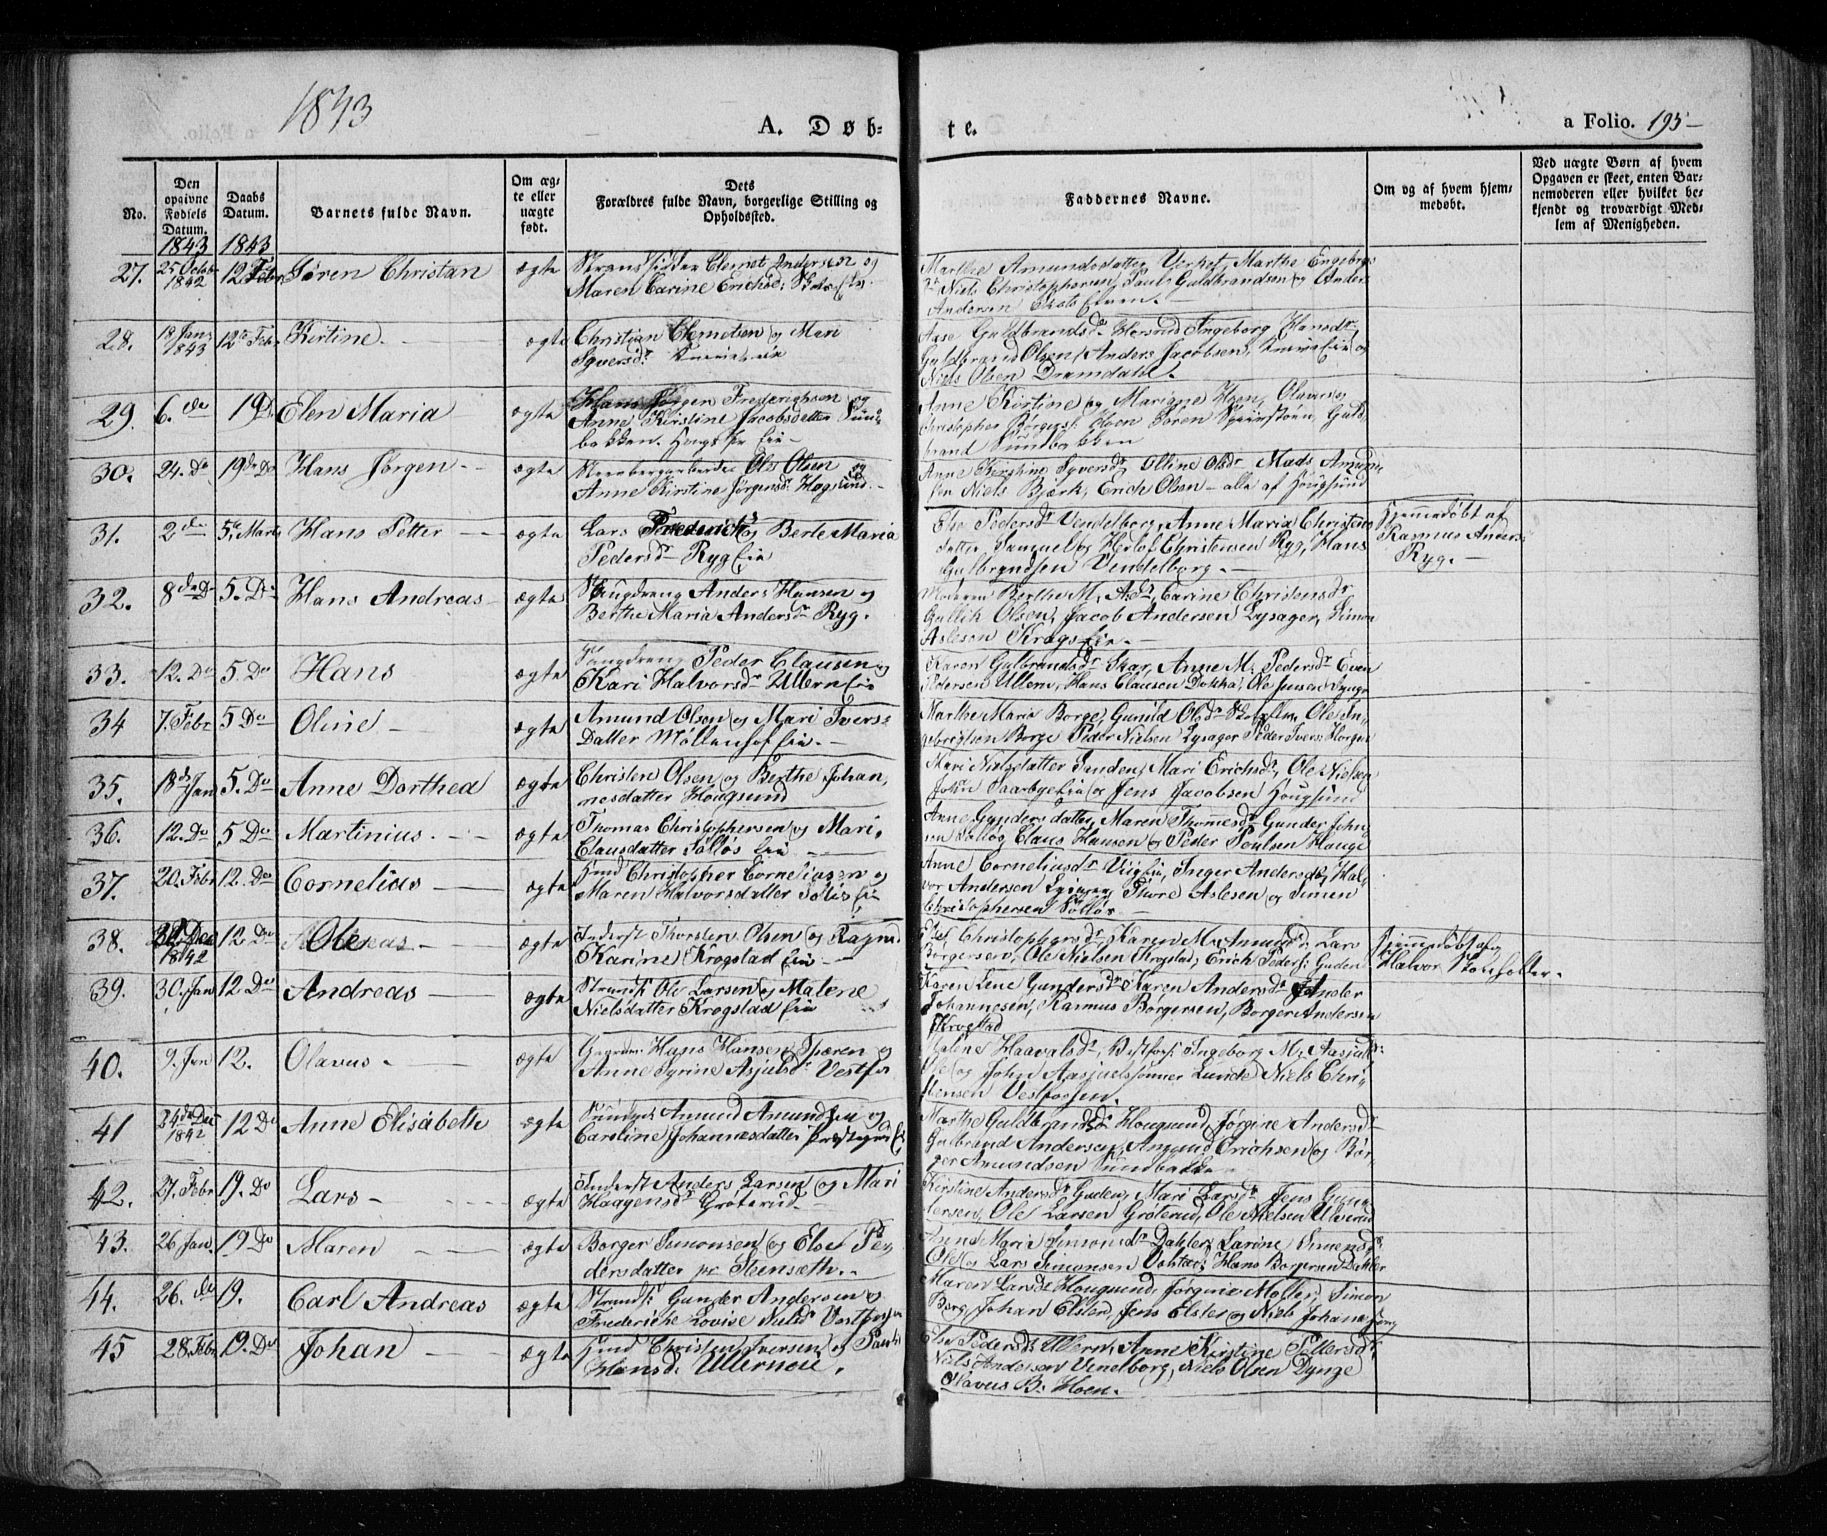 1843
A. Døb-
te.
a Folio. 195
No.
Den opgivne Fødsels Datum.
Daabs Datum.
Barnets fulde Navn.
Om ægte eller uægte født.
Dets
Forældres fulde Navn, borgerlige Stilling og
Opholdssted.
Faddernes Navne.
Om og af hvem hjemmedøbt.
Ved uægte Børn af hvem
Opgaven er skeet, enten Barnemoderen
eller hvilket bekjendt
og troværdigt Medlem
af Menigheden.
1843 1843
27. 25 Octob 1842 12 Febr Søren Christian ægte Clemet Andersen og
Maren Carine
Marthe Amundsdatter Verket, Marthe Engebrgs
Niels Christophersen, Pauls Guldbrandsen og Anders
Andersen
28. 18 Jan 1843 12te Febr Kirtine ægte Christian Clemetsen og Mari
Syversdr
Aase Guldbrandsdr Horsrud Ingeborg Hansdr
Guldbrand Olsen, Anders Jacobsen, og
Niels Olsen Dramdahl.
29. 6. do 19 Do Elen Maria ægte Hans Jørgen Frederichsen og
Anne Kirstine Jacobsdatter Sund-
bakken.
Anne Kirstine og Mariane Hoen, Olaves og
Christopher Børgers. Hoen Søren Guld-
brand Sundbakken
30. 24. Do 19 de Do Hans Jørgen ægte Ole Olsen og
Anne Kirstine Jørgensdr Hogsund.
Anne Kirstine Syversdr, Olline Olsdr Mads Amund-
sen Niels Bjerk, Erich Olsen - alle af Hougsund
31. 2 do 5te Marts Hans Petter ægte Lars Frederichs og Berte Maria
Pedersdr Ryg Eie
Else Pedersdr Vendelborg, Anne Maria Christens
datter Samuel og Herlof Christensen Ryg, Hans
Gulbrandsen Vendelborg.
Hjemmedøbt af
Rasmus Anders:
Ryg.
32. 8 de Do 5. Do Hans Andreas ægte Anders Hansen og
Berthe Maria Andersdr Ryg.
Moderen Berthe M. Adr, Carine Christensdr
Gullik Olsen, Jacob Andersen Lysager, Simon
Aslesen Krogs Eie.
33. 12. Do 5 Do Hans ægte Peder Clausen og
Kari Halvorsdr Ullern Eie
Karen Gulbrandsdr Skar, Anne M. Pedersdr Even
Pedersen Ullern, Hans Clausen Dokka, Ole Jensen
34 7. Febr 5 Do Oline ægte Amund Olsen og Mari Ivers-
Datter Møllenhof Eie.
Marthe Maria Borge, Gunild Olsdr Ole In-
gebrigtsen Borge Peder Nielsen Lysager Peder Ivers: Horgen
35. 18 de Jan 5. Do Anne Dorthea ægte Christen Olsen og Berthe Johan
nesdatter Hougsund
Mari Nielsdatter Sanden, Mari Erichsdr, Ole Nielsen
John Saarbye Eie og Jens Jacobsen Hougsund
36. 12. Do 5 Do Martinius. ægte Thomas Christophersen og Mari
Clausdatter Solløs Eie
Anne Gundersdatter, Maren Thomesdr Gunder John-
sen Solløs Claus Hansen og Peder Poulsen Houge
37. 20. Febr 12. Do Cornelius ægte Christopher Corneliusen og
Maren Halvorsdatter Solløs Eie
Anne Corneliusdr Viig Eie, Inger Andersdr, Hal-
vor Andersen Thore Aslesen og Simen
Christophersen Solløs
38. Dec 1842 12 Do Ole ægte Inderst Thorsten Olsen og Ragn.
Karine Krogstad Eie
Else Christophersdr, Karen M. Amundsdr, Lars
Børgersen, Ole Nielsen Krogstad, Erich Peders: Guden
Hjemmedøbt af
Halvor
39. 30. Jan 12. Do Andreas ægte Ole Larsen og Malene
Nielsdatter Krogstad Eie
Karen Lene Gundersdr Karen Andersdr
Johannesen, Rasmus Børgersen, Borger Andersen
Krogstad
40. 9. Jan 12. Olavus ægte Hans Hansen Sparen og
Anne Syrine Asjulsdr Vestfos
Malene Haavalsdr, Ingeborg M. Aasjuls
Ole og John Aasjuelssønner Lunde Niels Chri-
stensen Vestfossen.
41 24de Dec 1842 12 Do Anne Elisabeth ægte Amund Amundsen og
Caroline Johannesdatter
Marthe Guldbrandsdr Hougsund, Jørgine Andersdr
Gulbrand Andersen, Amund Erichsen og Bør-
ger Amundsen Sundbakken
42. 27. Febr 19. Do Lars ægte Inderst Anders Larsen og Mari
Haagensdr Grøterud
Kirstine Andersdr Guden, Mari Larsdr Jens Gun-
dersen, Ole Larsen Grøterud, Ole Nielsen Ulverud
43. 26 Jan 19 Do Maren ægte Borger Simonsen og Else Pe-
dersdatter Stensæth.
Anne Maria Simonsdr Dahler, Larine Simensdr
Ole og Lars Simonsen Hans Borgersen Dahler
44. 26. do 19. Carl Andreas ægte Gunder Andersen og
Frederiche Lovise Nielsdr Vestfossen
Maren Larsdr Hougsund, Jørgine Møller, Simon
Berg, Johan Elster, Jens Elster og Niels
45 28 Febr 19. Do Johan ægte Christen Iversen og
Hansdr. Ullernøie.
Else Pedersdr Ullern, Anne Kirstine Pettersdr
Niels Andersen Vendelborg, Niels Olsen Dynge
Olavus B. Hoen.